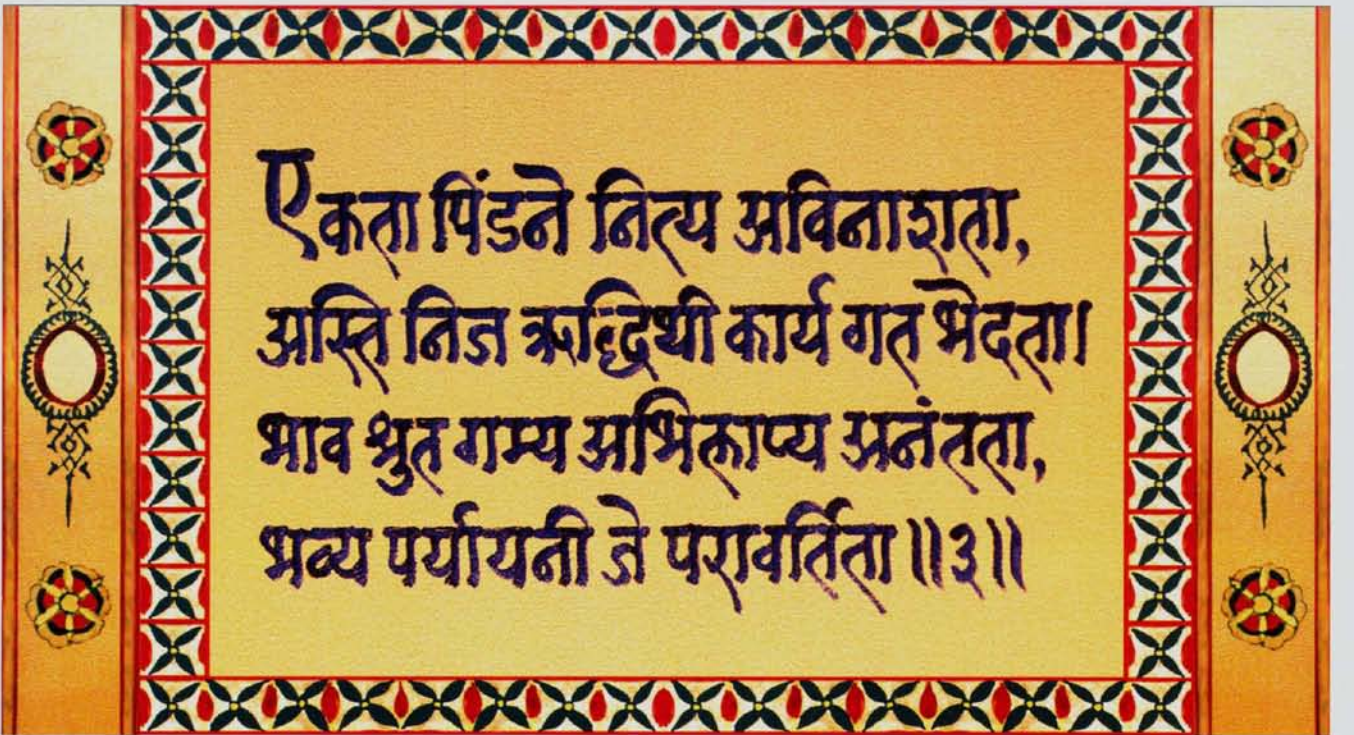 एकता पिंडने नित्य अविनाशता,
अस्ति निज ऋद्धिथी कार्य गत भेदता।
भाव श्रुत गम्य अभिलाप्य अनंतता,
भव्य पर्यायनी जे परावर्तिता॥३॥